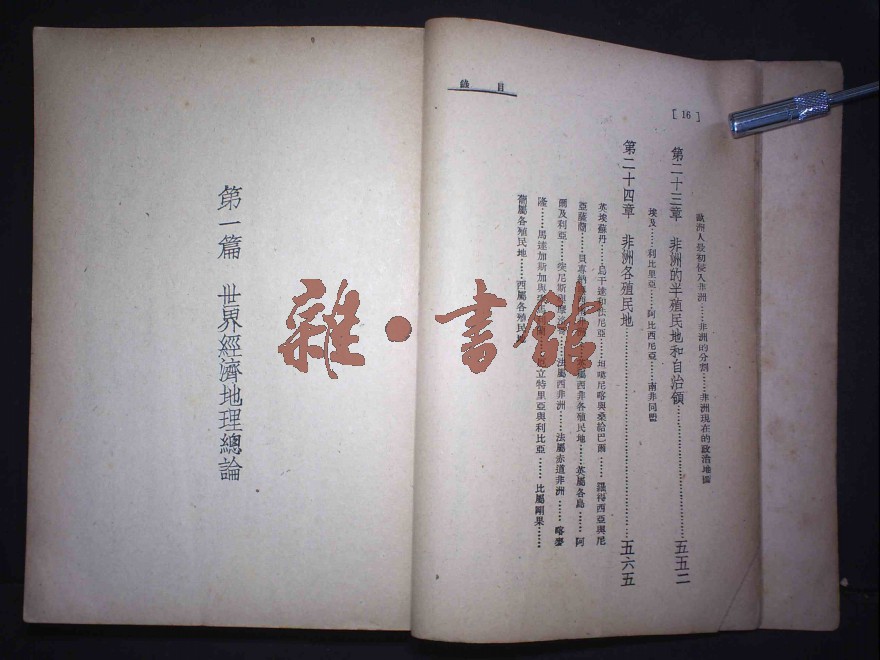 目錄
[16]
歐洲人最初侵入非洲……非洲的分割……非洲現在的政治地圖
第二十三章 非洲的半殖民地和自治領……五五二
埃及……利比里亞……阿比西尼亞……南非同盟
第二十四章 非洲各殖民地……五六五
英埃蘇丹……烏干達和法尼亞……坦噶尼喀與桑給巴爾……羅得西亞與尼
亞薩蘭……貝專納……屬西非各殖民地……英屬各島……阿
爾及利亞……突尼斯與摩洛哥……法屬西非洲……法屬赤道非洲……喀麥
隆……馬達加斯加與……立特里亞與利比亞……比屬剛果……
葡屬各殖民地……西屬各殖民地
第一篇 世界經濟地理總論
雜·書館